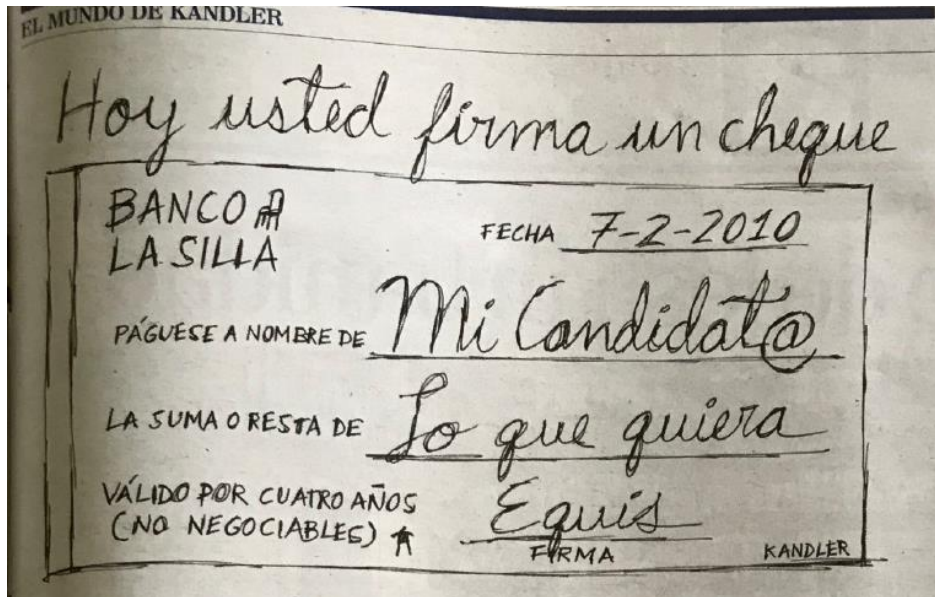 EL MUNDO DE KANDLER
Hoy usted firma un cheque
BANCO
LA SILLA
FECHA 7-2-2010
PÁGUESE A NOMBRE DE Mi Candidat@
LA SUMA O RESTA DE Lo que quiera
VÁLIDO POR CUATRO AÑOS
(NO NEGOCIABLES)
Equis
FIRMA
KANDLER